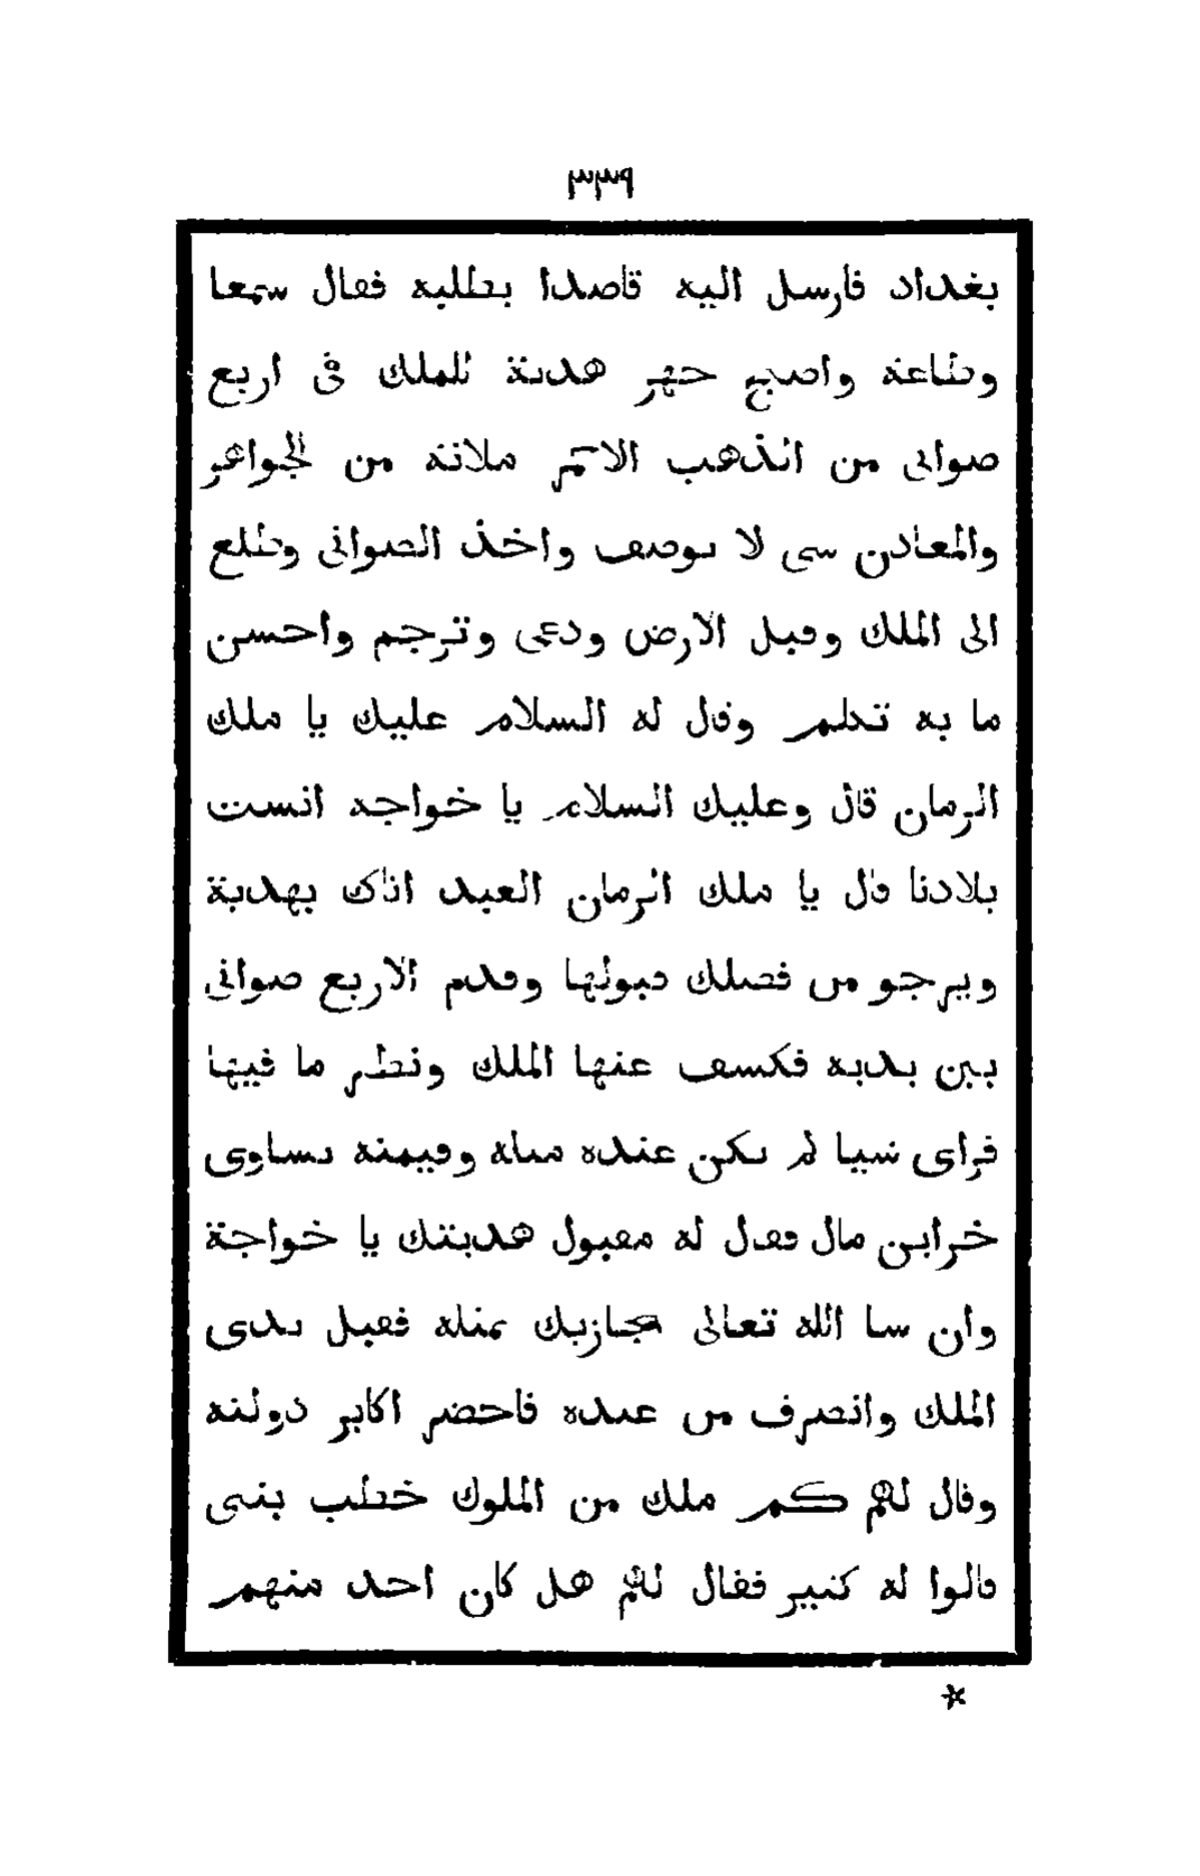 ٣٣٩
بغداد فارسل اليه قاصدا بطلبه فقال سمعا
وطاعة واصبح جهز هدية للملك فى اربع
صوانى من الذهب الاحمر ملانة من الجواهر
والمعادن سى لا يوصف واخذ الصوانى وطلع
الى الملك وقبل الارض ودعى وترجم واحسن
ما به تكلم وقال له السلام عليك يا ملك
الزمان قال وعليك السلام يا خواجه انست
بلادنا قال يا ملك الزمان العبد اتاك بهدية
ويرجو من فضلك قبولها وقدم الاربع صوانى
بين يديه فكشف عنها الملك ونظر ما فيها
فراى شيا لم يكن عنده مثله وقيمته تساوى
خزاين مال فقال له مقبول هديتك يا خواجة
وان شا الله تعالى نجازيك بمثله فقبل يدى
الملك وانصرف من عنده فاحضر اكابر دولته
وقال لهم كم ملك من الملوك خطب بنتى
قالوا له كثير فقال لهم هل كان احد منهم
*